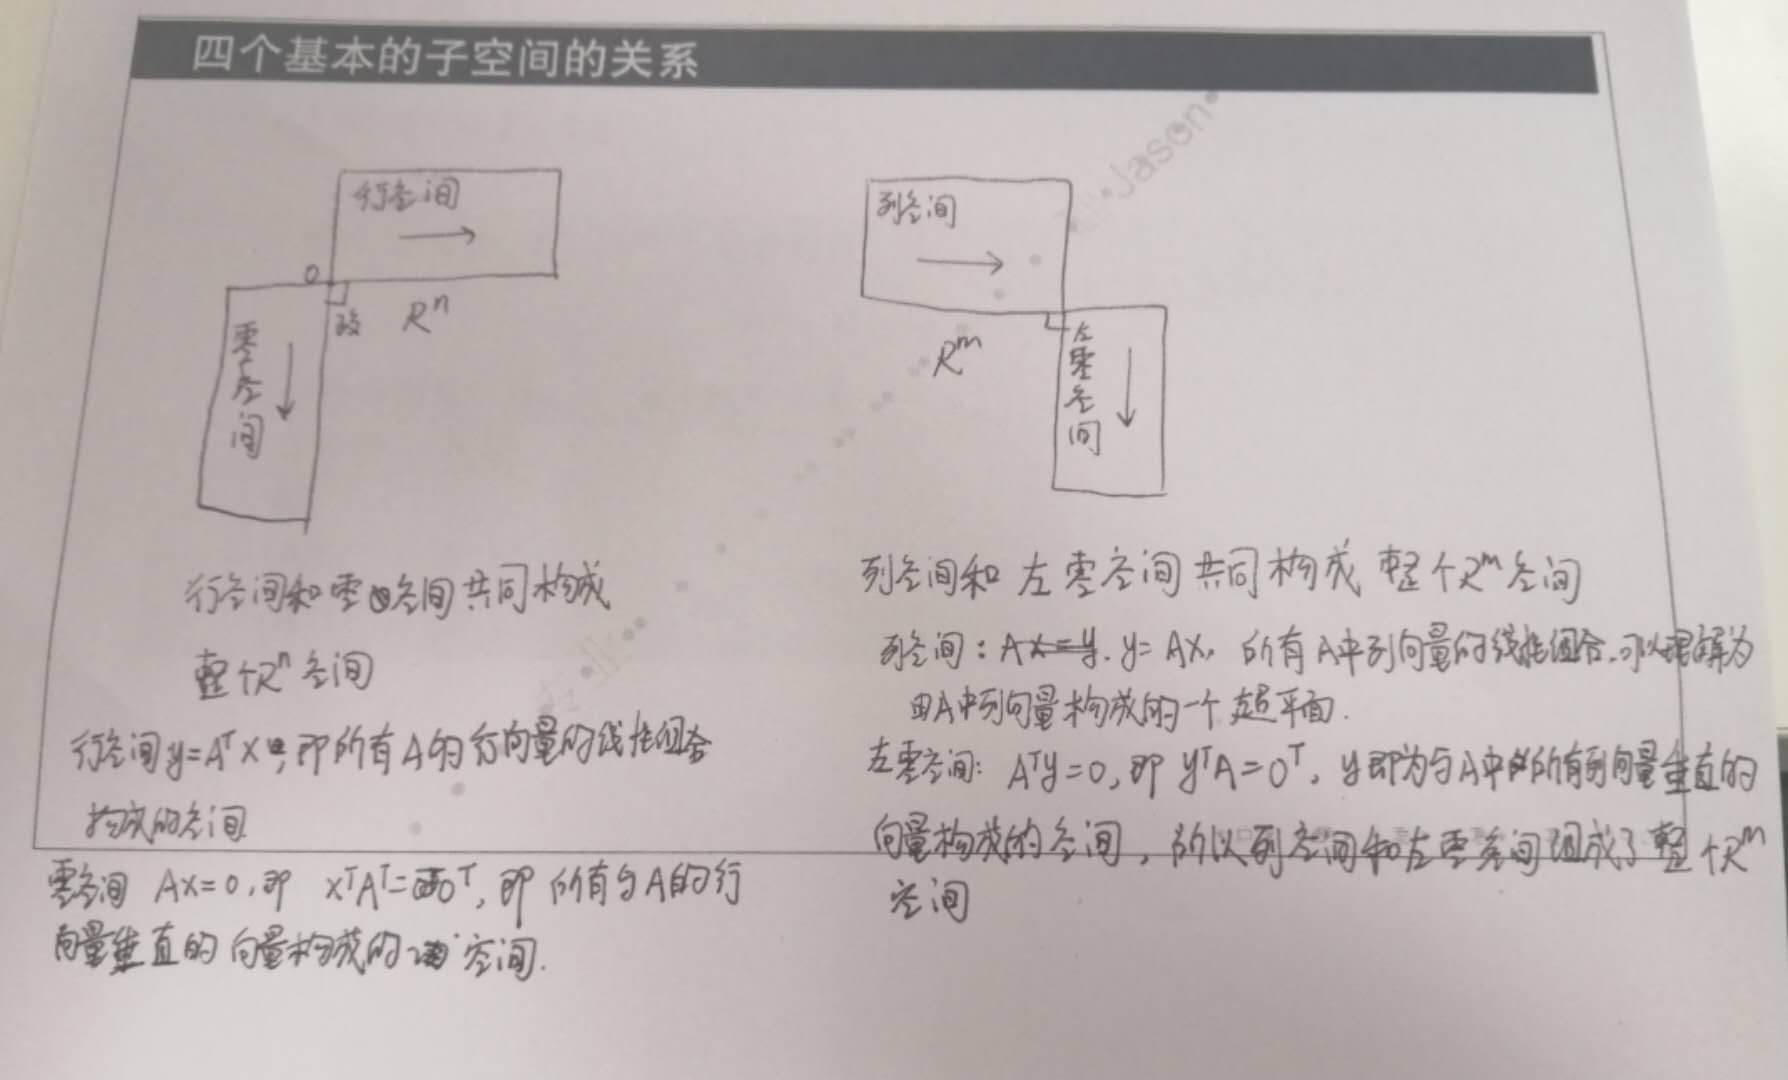 四个基本的子空间的关系
·Jason·
行空间
0
R^n
零空间
列空间
R^m
左零空间
行空间和零空间共同构成
整个R^n空间
行空间y=A^T x,即所有A的行向量的线性组合
构成的空间
零空间 Ax=0,即 x^T A^T=0^T,即所有与A的行
向量垂直的向量构成的空间.
列空间和左零空间共同构成 整个R^m空间
列空间:Ax=y. y=Ax, 所有A中列向量的线性组合.可以理解为
由A中列向量构成的一个超平面.
左零空间: A^T y=0,即 y^T A=0^T, y即为与A中所有列向量垂直的
向量构成的空间,所以列空间和左零空间组成了整个R^m
空间